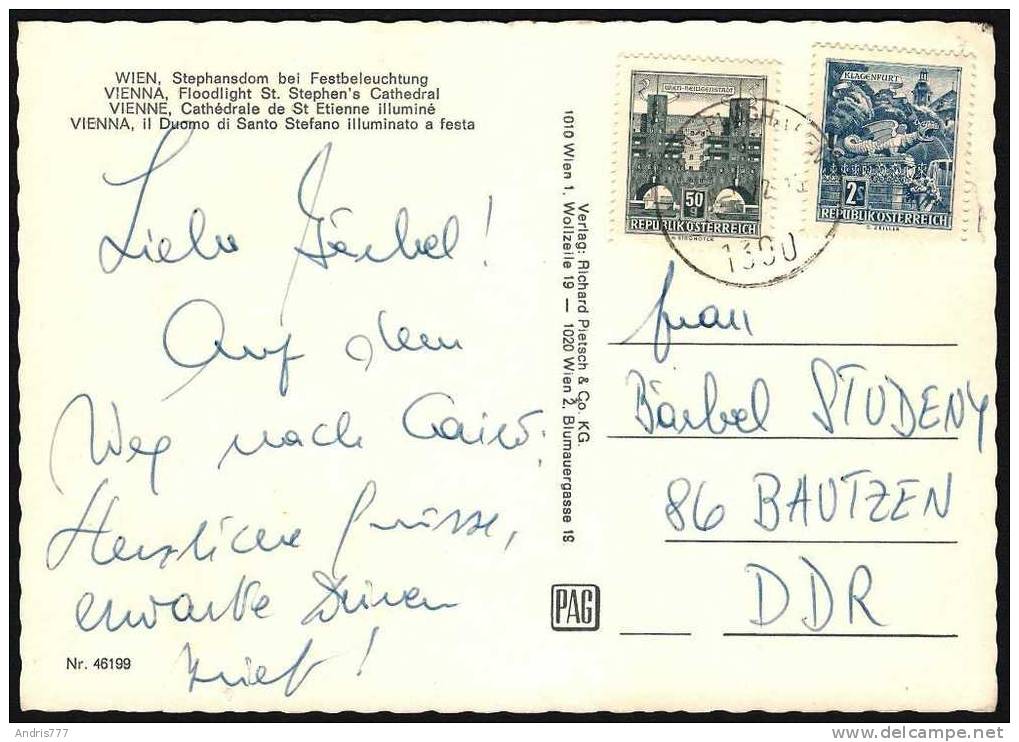 WIEN, Stephansdom bei Festbeleuchtung
VIENNA, Floodlight St. Stephen's Cathedral
VIENNE, Cathédrale de St Etienne illuminé
VIENNA, il Duomo di Santo Stefano illuminato a festa
Liebe Bärbel!
Auf dem
Weg nach Cairo.
Herzliche Grüsse,
erwarte Deinen
Brief!
Nr. 46199
Verlag: Richard Pietsch & Co. KG.
1010 Wien 1. Wollzeile 19 — 1020 Wien 2. Blumauergasse 18
PAG
WIEN-HEILIGENSTADT
50
g
REPUBLIK ÖSTERREICH
KLAGENFURT
2S
REPUBLIK ÖSTERREICH
1300
Frau
Bärbel STUDENY
86 BAUTZEN
DDR
Andris777
www.delcampe.net